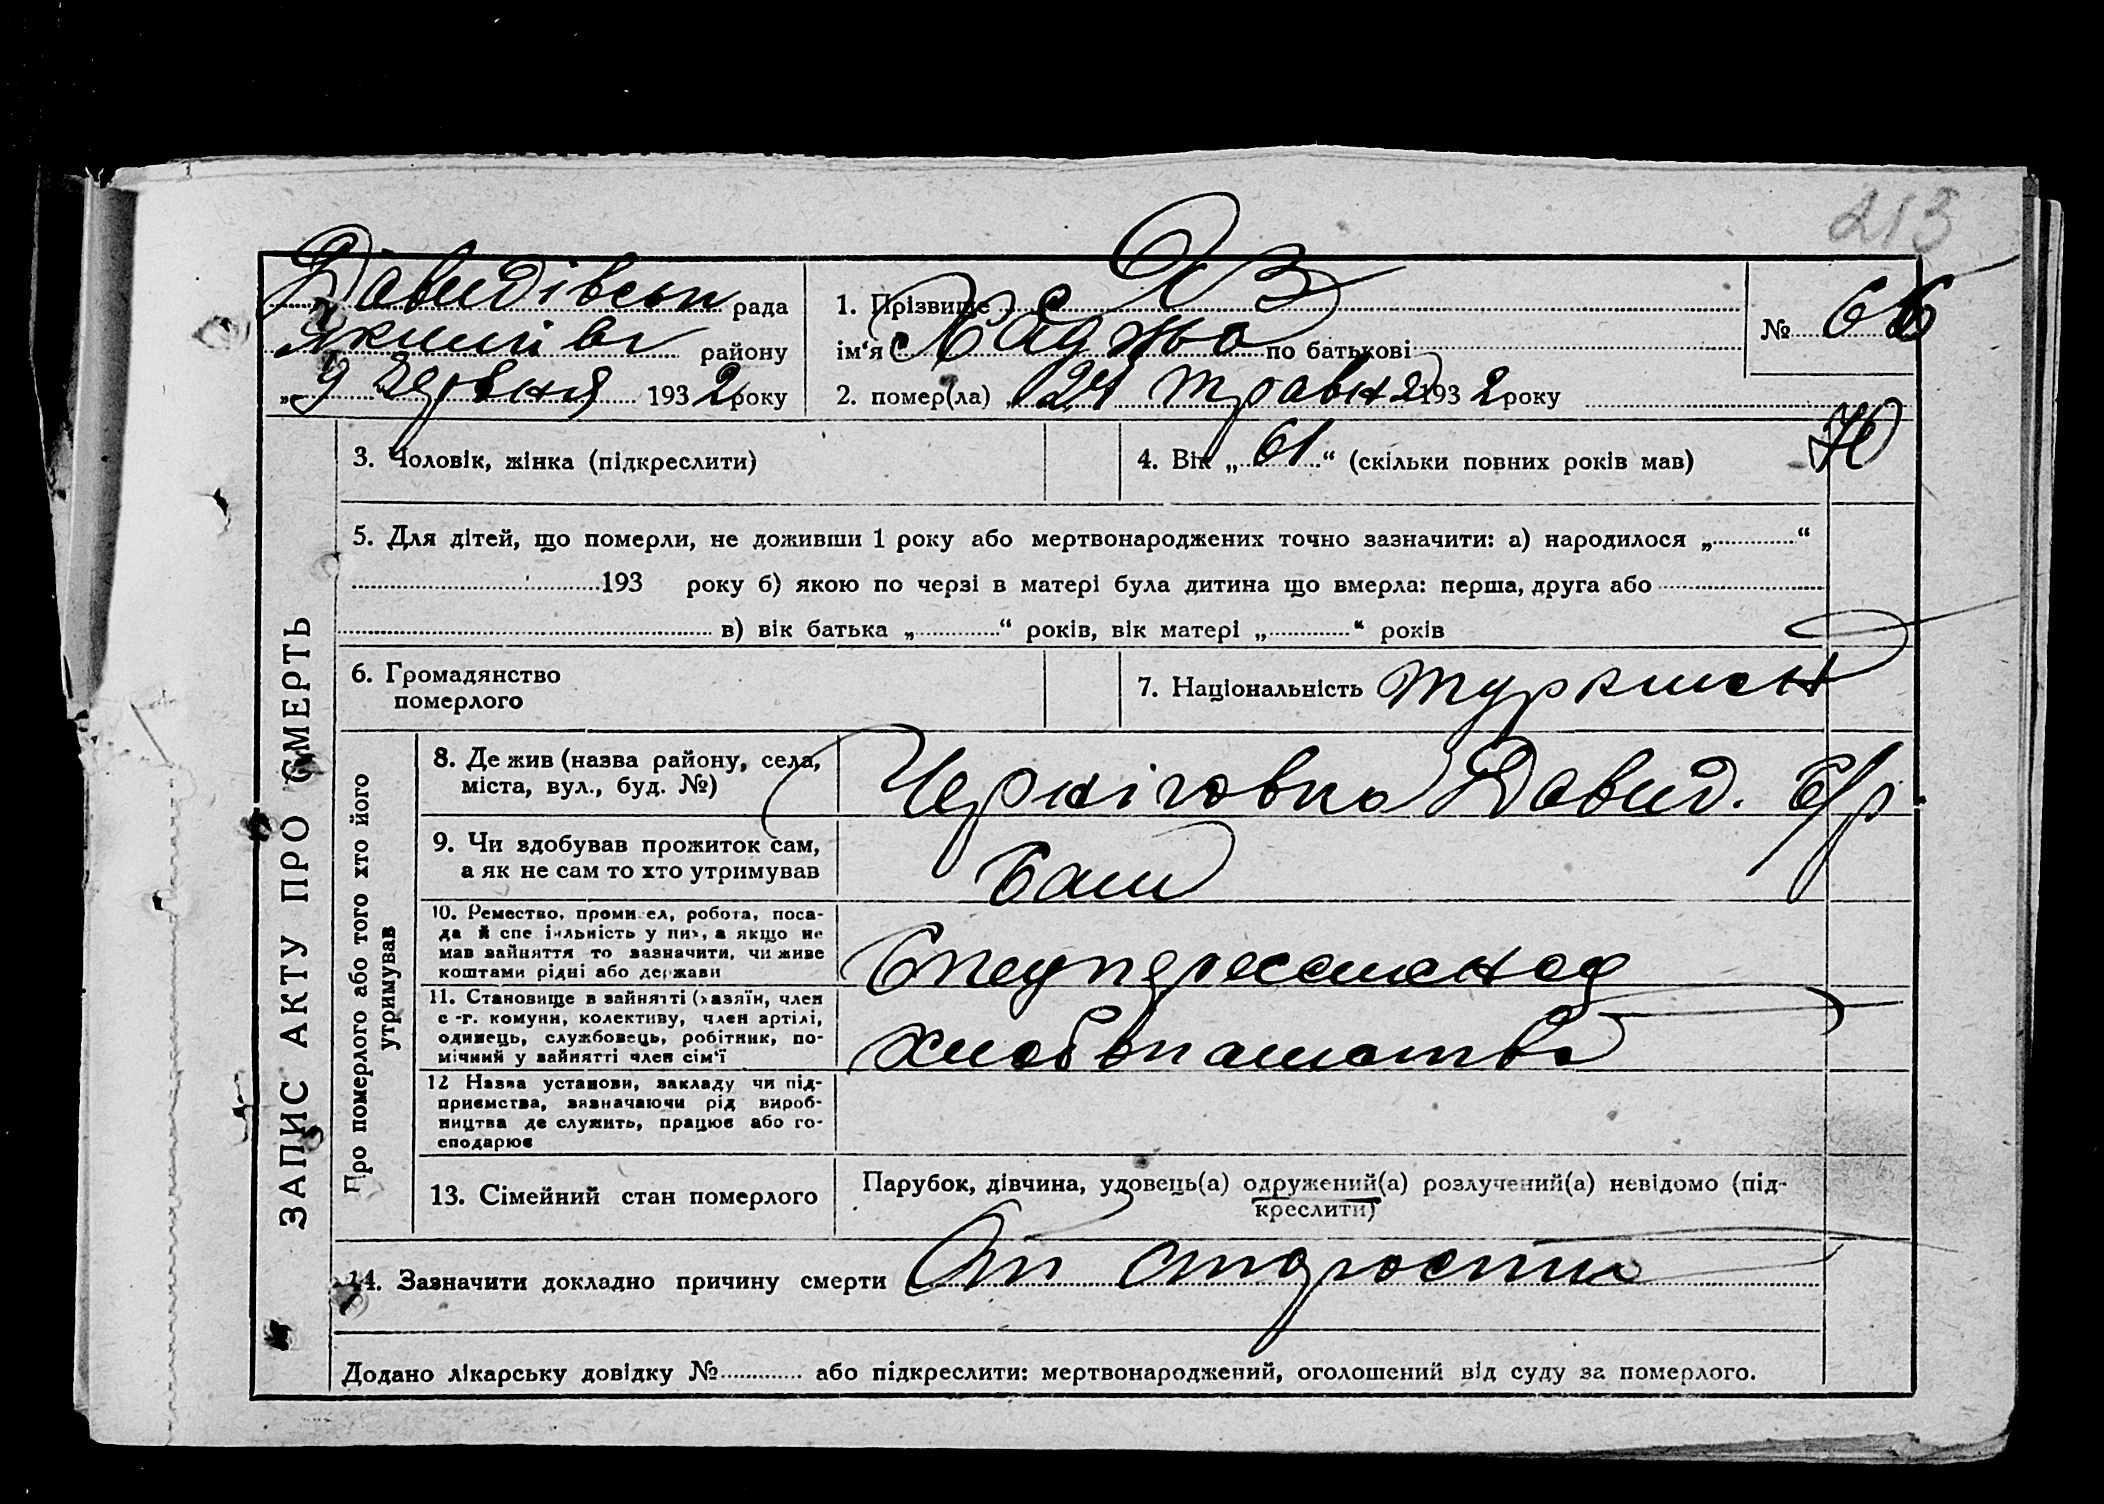 213
Давидівськ рада
Якимів району
„ 9 Червня 1932 року
1. Прізвище
ім‘я Хаджа по батькові
2. помер(ла) 24 травня 1932 року
№ 66
ЗАПИС АКТУ ПРО СМЕРТЬ
3. Чоловік, жінка (підкреслити)
4. Вік „ 61 “ (скільки повних років мав)
5. Для дітей, що померли, не доживши 1 року або мертвонароджених точно зазначити: а) народилося „ “
193 року б) якою по черзі в матері була дитина що вмерла: перша, друга або
в) вік батька „ “ років, вік матері „ “ років
6. Громадянство
померлого
7. Національність туркмен
Про померлого або того хто його
утримував
8. Де жив (назва району, села,
міста, вул., буд. №)
Чернiговка Давид. с/р
9. Чи здобував прожиток сам,
а як не сам то хто утримував
Сам
10. Ремество, промисел, робота, поса-
да й спеціяльність у них, а якщо не
мав зайняття то зазначити, чи живе
коштами рідні або держави
Спецпереселенец
11. Становище в зайнятті (хазяїн, член
с.-г. комуни, колективу, член артілі,
одинець, службовець, робітник, по-
мічний у зайнятті член сім‘ї
хлебопашество
12 Назва установи, закладу чи під-
приємства, зазначаючи рід вироб-
ництва де служить, працює або го-
сподарює
13. Сімейний стан померлого
Парубок, дівчина, удовець(а) одружений(а) розлучений(а) невідомо (під-
креслити)
14. Зазначити докладно причину смерти От старости
Додано лікарську довідку № або підкреслити: мертвонароджений, оголошений від суду за померлого.